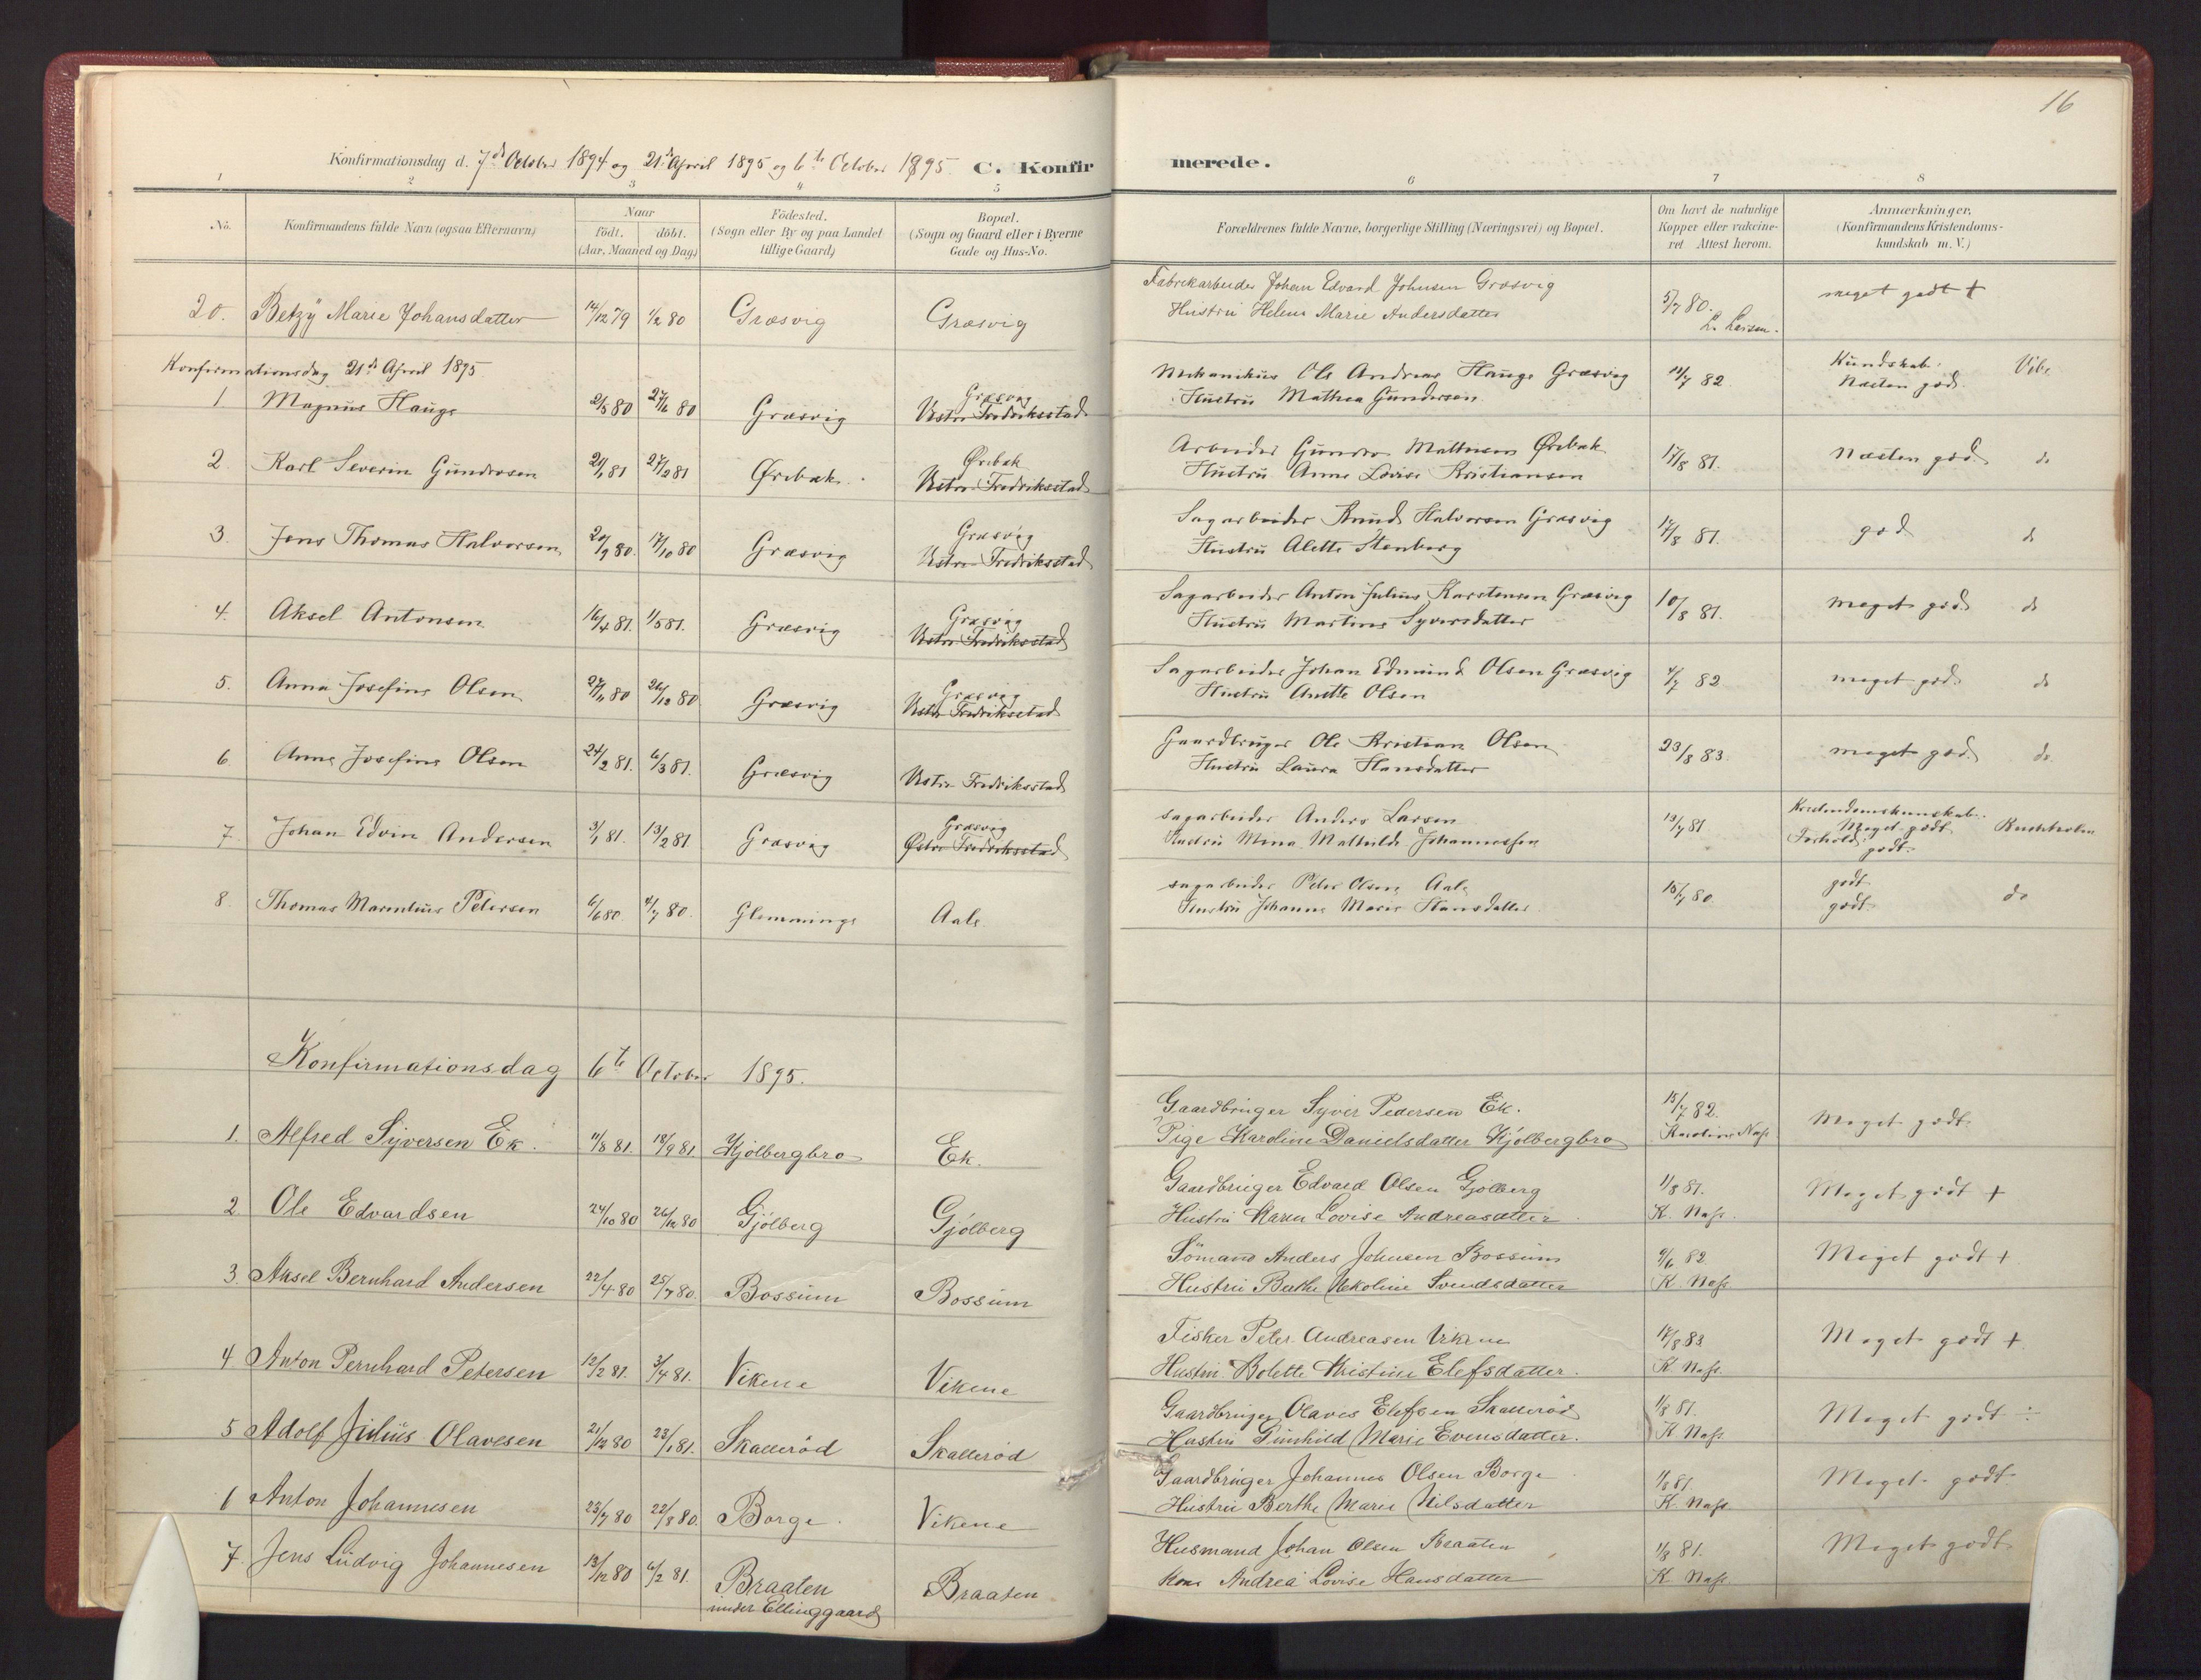 16
Konfirmationsdag d. 7de October 1894 og 21de April 1895 og 6te October 1895. C. Konfirmerede.
1 2 3 4 5 6 7 8
No. Konfirmandens fulde Navn (ogsaa Efternavn) Naar Födested. Bopæl. Forældrenes fulde Navne, borgerlige Stilling (Næringsvei) og Bopæl. Om havt de naturlige Anmærkninger,
födt. döbt. (Sogn eller By og paa Landet (Sogn og Gaard eller i Byerne Kopper eller vakcine- (Konfirmandens Kristendoms-
(Aar, Maaned og Dag) tillige Gaard) Gade og Hus-No. ret Attest herom. kundskab m. V.)
20. Betzy Marie Johansdatter 14/12 79 1/2 80 Græsvig Græsvig Fabrikarbeider Johan Edvard Johnsen Græsvig 5/7 80. meget godt +
Hustru Helene Marie Andersdatter L. Larsen.
Konfirmationsdag 21de April 1895
1 Magnus Hauge 2/5 80 27/6 80 Græsvig Græsvig Mekanikus Ole Andreas Hauge Græsvig 11/7 82 Kundskab: Vibe
Vestre Fredriksstad Hustru Mathea Gundersen Næsten god.
2. Karl Severin Gundersen 21/1 81 27/2 81 Ørebak Ørebak Arbeider Gunder Mathisen Ørebak 17/8 81. Næsten god do
Vestre Fredriksstad Hustru Anne Lovise Kristiansen
3. Jens Thomas Halvorsen 20/9 80. 17/10 80 Græsvig Græsvig Sagarbeider Amund Halvorsen Græsvig 17/8 81. god do
Vestre Fredriksstad Hustru Alette Stenberg
4. Aksel Antonsen 16/4 81. 1/5 81. Græsvig Græsvig Sagarbeider Anton Julius Karstensen Græsvig 10/8 81. meget god do
Vestre Fredriksstad Hustru Martine Syversdatter
5. Anna Josefine Olsen 27/11 80 26/12 80 Græsvig Græsvig Sagarbeider Johan Edmund Olsen Græsvig 4/7 82 meget god do
Vestre Fredriksstad Hustru Anette Olsen
6. Anne Josefine Olsen 24/2 81. 6/3 81. Græsvig Vestre Fredriksstad Gaardbruger Ole Kristian Olsen 23/8 83. meget god. do
Hustru Laura Hansdatter
7. Johan Edvin Andersen 3/1 81. 13/2 81 Græsvig Græsvig sagarbeider Anders Larsen 13/7 81 Kristendomskunskab: Meget godt
Østre Fredriksstad Hustru Mina Mathilde Johannessen Forhold: godt.
8. Thomas Petersen 6/6 80. 4/7 80. Glemminge Aale sagarbeider Peter Olsen Aale 15/7 80 godt do
Hustru Johanne Marie Hansdatter godt
Konfirmationsdag 6te October 1895.
1. Alfred Syversen Ek. 11/8 81. 18/9 81. Kjölbergbro Ek. Gaardbruger Syver Pedersen Ek. 15/7 82. Meget godt
Pige Karoline Danielsdatter Kjölbergbro Karoline Næss
2. Ole Edvardsen 24/10 80 26/12 80 Gjölberg Gjölberg Gaardbruger Edvard Olsen Gjölberg 11/8 81. Meget godt +
Hustru Karen Lovise Andreasdatter K. Næss.
3. Aksel Bernhard Andersen 22/4 80 25/7 80. Bossum Bossum Sömand Anders Johnsen Bossum 9/6 82 Meget godt +
Hustru Berthe Nekoline Svendsdatter K. Næss
4 Anton Bernhard Petersen 12/2 81. 3/4 81. Vikene Vikene Fisker Peter Andreasen Vikene 17/8 83 Meget godt +
Hustru Bolette Kristine Elefsdatter. K. Næss.
5 Adolf Julius Olavesen 21/12 80 23/1 81. Skalleröd Skalleröd Gaardbruger Olaves Elefsen Skalleröd 1/8 81. Meget godt ÷
Hustru Gunhild Marie Evensdatter. K Næss
6 Anton Johannesen 23/7 80 22/8 80. Borge. Vikene Gaardbruger Johannes Olsen Borge 1/8 81. Meget godt
Hustru Berthe Marie Nilsdatter K. Næss
7. Jens Ludvig Johannesen 13/12 80 6/2 81. Braaten Braaten Husmand Johan Olsen Braaten 1/8 81. Meget godt
under Ellinggaard Kone Andrea Lovise Hansdatter K. Næss